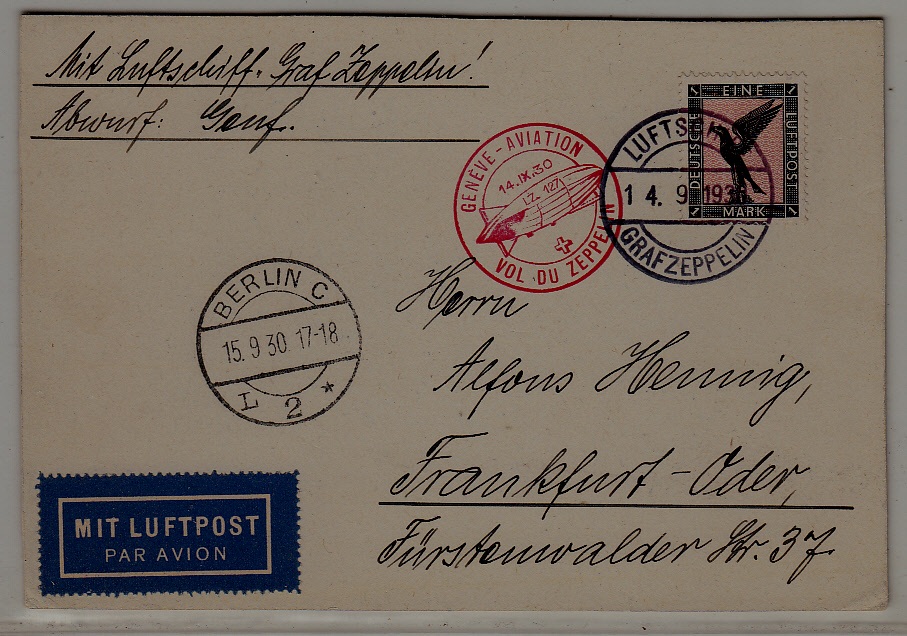 Mit Luftschiff "Graf Zeppelin"!
Abwurf: Genf.
1 EINE 1
DEUTSCHE LUFTPOST
1 MARK 1
GENÈVE - AVIATION
14.IX.30
LZ. 127
VOL DU ZEPPELIN
LUFTSCHIFF
14. 9. 1930
GRAF ZEPPELIN
BERLIN C
15. 9 30. 17-18
L 2 *
Herrn
Alfons Hennig,
Frankfurt-Oder,
Fürstenwalder Str. 37.
MIT LUFTPOST
PAR AVION